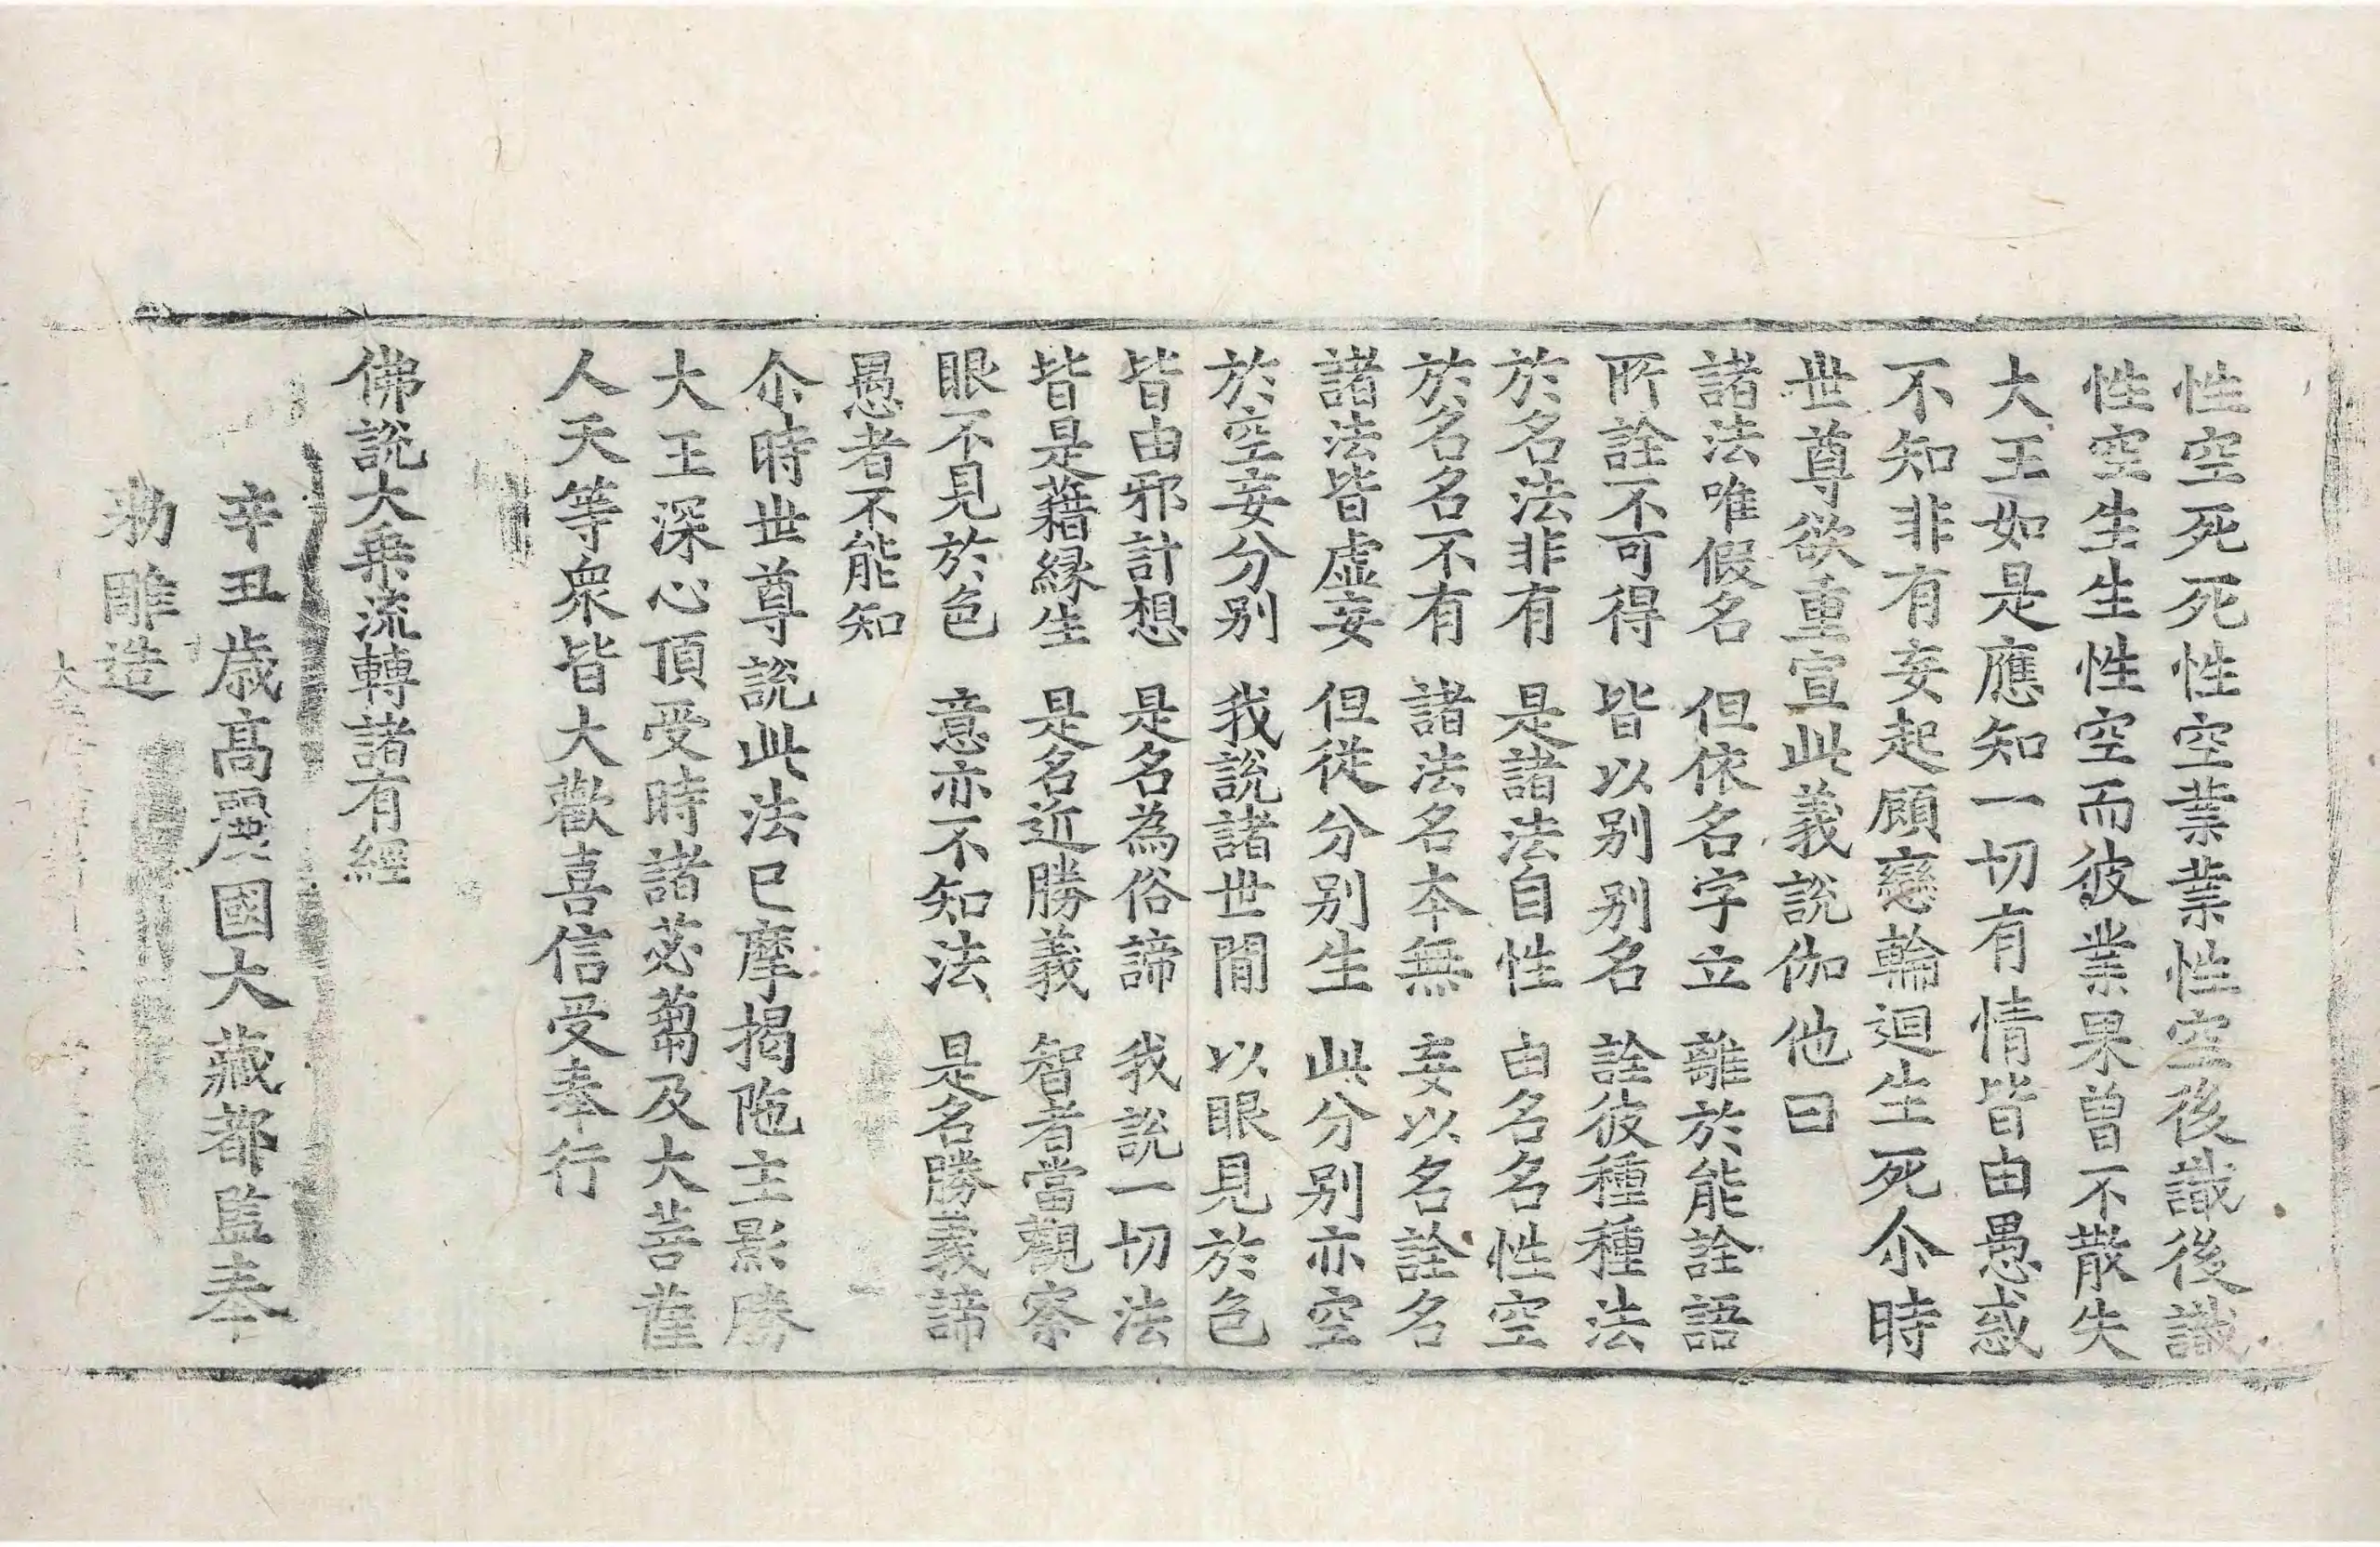 性空死死性空業業性空後識後識
性空生生性空而彼業果曽不散失
大王如是應知一切有情皆由愚惑
不知非有妄起顧戀輪迴生死尒時
世尊欲重宣此義說伽他曰
諸法唯假名　但依名字立　離於能詮語
所詮不可得　皆以别别名　詮彼種種法
於名法非有　是諸法自性　由名名性空
於名名不有　諸法名本無　妄以名詮名
諸法皆虛妄　但從分别生　此分别亦空
於空妄分别　我說諸世間　以眼見於色
皆由邪計想　是名為俗諦　我說一切法
皆是藉緣生　是名近勝義　智者當觀察
眼不見於色　意亦不知法　是名勝義諦
愚者不能知
尒時世尊說此法已摩揭陁主影勝
大王深心頂受時諸苾蒭及大菩薩
人天等衆皆大歡喜信受奉行
佛說大乗流轉諸有經
辛丑歲高麗國大藏都監奉
勑雕造